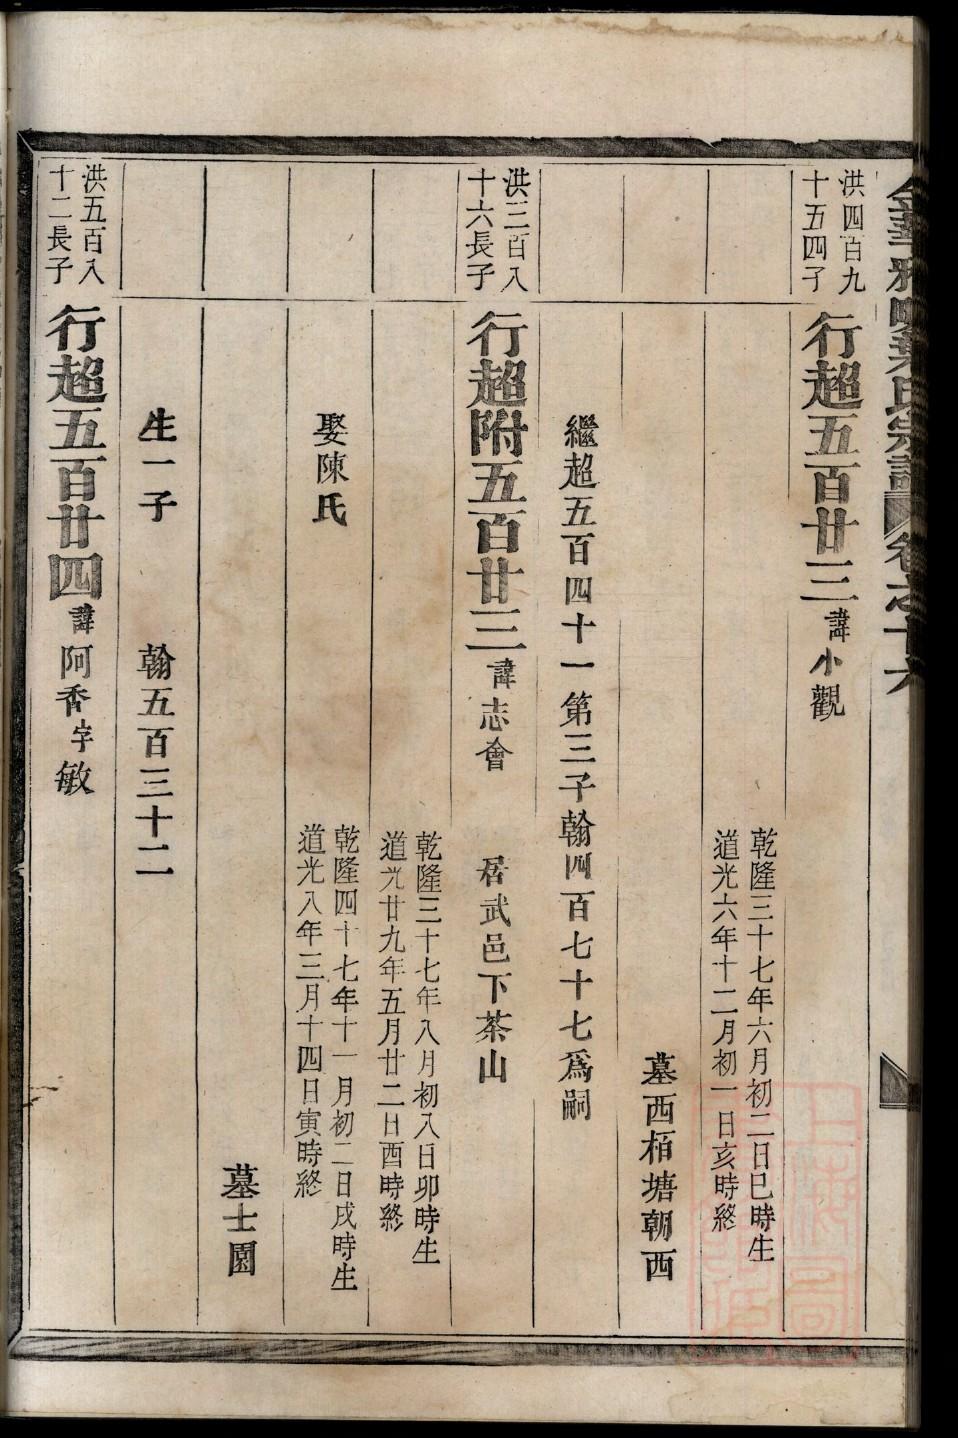 金華雅畈葉氏宗譜 卷之十六
洪四百九
十五四子
行超五百廿三 諱小觀
乾隆三十七年六月初二日巳時生
道光六年十二月初一日亥時終
墓西栢塘朝西
繼超五百四十一第三子翰四百七十七爲嗣
洪三百八
十六長子
行超附五百廿三 諱志會 居武邑下茶山
乾隆三十七年八月初八日卯時生
道光廿九年五月廿二日酉時終
娶陳氏
乾隆四十七年十一月初二日戌時生
道光八年三月十四日寅時終
墓士園
生一子 翰五百三十二
洪五百八
十二長子
行超五百廿四 諱阿香字敏